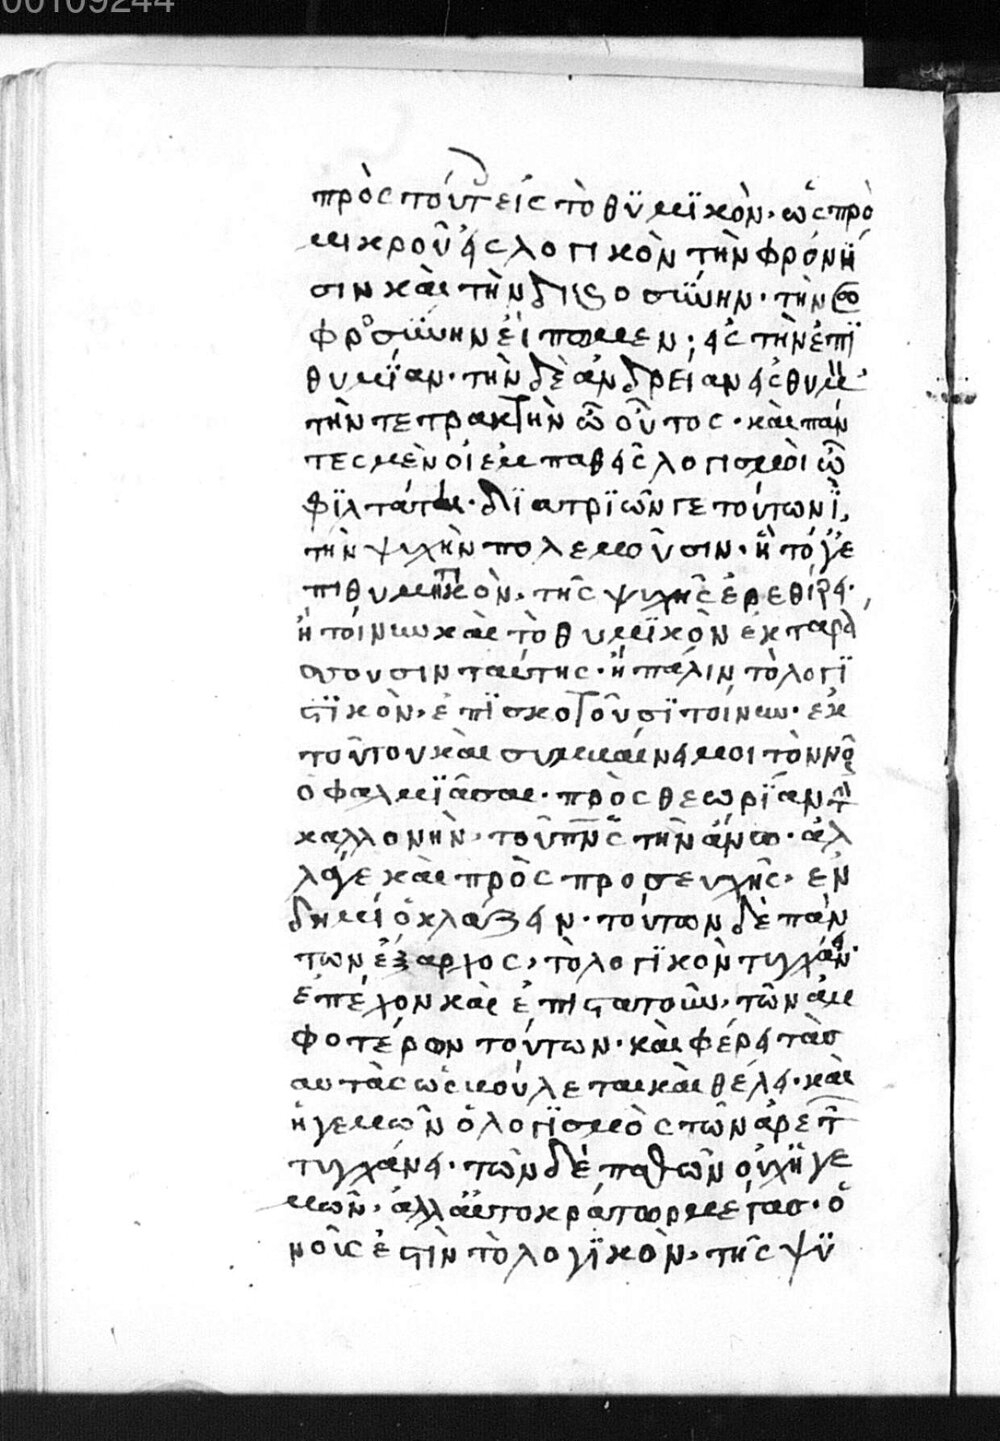 00109244
πρὸς τούτ εἰς τὸ θϋμϊκὸν, ὡς πρὸ
μικροῦ εἰς λογικὸν τὴν φρόνη
σιν καὶ τὴν δικαιοσύνην· τὴν σω
φροσύνην εἴπομεν; εἰς τὴν ἐπϊ
θυμίαν· τὴν δὲ ἀνδρείαν εἰς θυμ
τὴν τετρακτὴν ὦ οὗτος· καὶ πάν
τες μὲν οἱ ἐμπαθεῖς λογισμοὶ ὦ
φίλτατε· διὰ τριῶν γε τούτων ϊ,
τὴν ψυχὴν πολεμοῦσιν· ἢ τό γε
πιθυμητικὸν, τῆς ψυχῆς ἐρεθίζει·
ἢ τοίνυν καὶ τὸ θυμϊκὸν ἐκταρά
σσουσιν ταύτης· ἢ πάλιν τὸ λογϊ
στϊκὸν, ἐπϊσκοτοῦσϊ τοίνυν· ἐκ
τούτου καὶ συμβαίνει μοι τὸν νοῦ
ὀφαλμϊᾶσαι· πρὸς θεωρίαν τ
καλλονὴν, τοῦ πνς τὴν ἄνω· ἀλ
λά γε καὶ πρὸς προσευχῆς, ἐν
δημεί ὀκλάζειν· τούτων δὲ πάν
των ἔξαρχος, τὸ λογϊκὸν τυγχάνει·
ἐπέχον καὶ ἐπιστατοῦν, τῶν ἀμ
φοτέρων τούτων· καὶ φέρει τάσ
αυτὰς ὡς βούλεται καὶ θέλει· καὶ
ἡγεμὼν ὁ λογϊσμὸς τῶν ἀρετ
τυγχάνει· τῶν δὲ παθῶν οὐχ ἡγε
μὼν, ἀλλ αὐτοκράτωρ μέγας· ὁ
νοῦς ἐστὶν τὸ λογϊκὸν, τῆς ψϋ